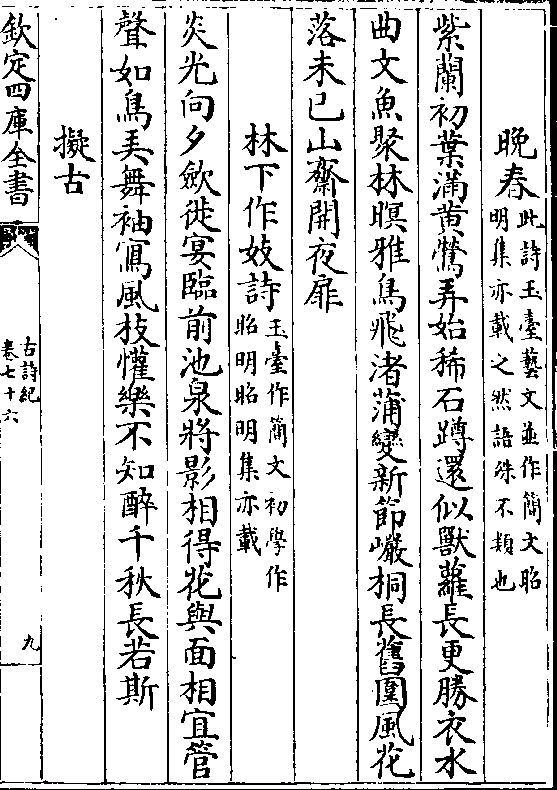 晚春 此詩玉臺藝文並作簡文昭
明集亦載之然語殊不類也
紫蘭初葉滿黄鶯弄始稀石蹲還似獸蘿長更勝衣水
曲文魚聚林暝雅鳥飛渚蒲變新節巖桐長舊圍風花
落未已山齋開夜扉
林下作妓詩 玉臺作簡文初學作
昭明昭明集亦載
炎光向夕歛徙宴臨前池泉將影相得花與面相宜管
聲如鳥弄舞袖寫風枝懽樂不知醉千秋長若斯
擬古
欽定四庫全書
古詩紀
卷七十六
九